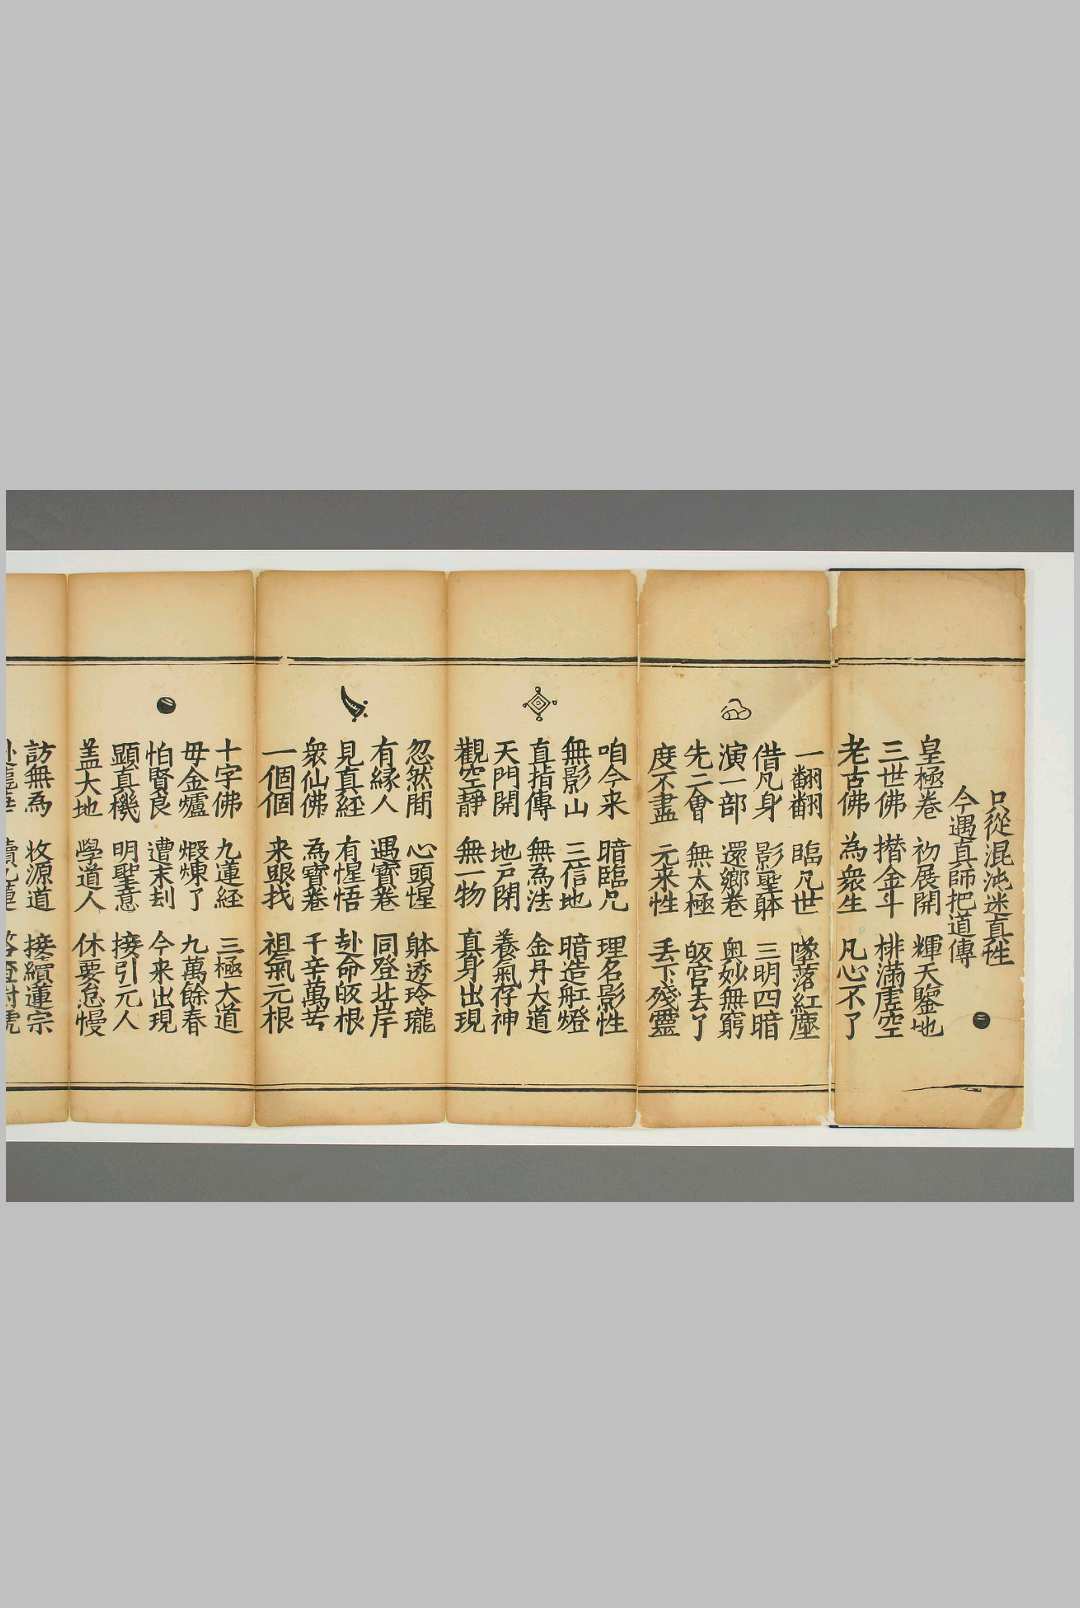 只從混沌迷真性
今遇真師把道傳
皇極卷 初展開 輝天鑒地
三世佛 攢金斗 排滿虛空
老古佛 為衆生 凡心不了
一翻翻 臨凡世 墜落紅塵
借凡身 影聖躰 三明四暗
演一部 還鄉卷 奥妙無窮
先二會 無太極 皈宮去了
度不盡 元来性 丢下殘靈
咱今来 暗臨凡 理名影性
無影山 三信地 暗造舡燈
直指傳 無為法 金丹大道
天門開 地戸閉 養氣存神
觀空靜 無一物 真身出現
忽然間 心頭惺 躰透玲瓏
有縁人 遇寳卷 同登北岸
見真経 有惺悟 赴命皈根
衆仙佛 為寳卷 千辛萬苦
一個個 来跟找 祖氣元根
十字佛 九蓮経 三極大道
毋金爐 煅煉了 九萬餘春
怕賢良 遭末刦 今来出現
顕真機 明聖意 接引元人
盖大地 學道人 休要怠慢
訪無為 收源道 接續蓮宗